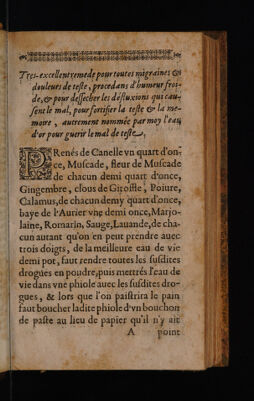 Tres-excellent remede pour toutes migraines &
douleurs de teste, procedans d'humeur froi-
de, & pour dessecher les defluxions qui cau-
sent le mal, pour fortifier la teste & la me-
moire, autrement nommée par moy l'eau
d'or pour guerir le mal de teste.
PRenés de Canelle vn quart d'on-
ce, Muscade, fleur de Muscade
de chacun demi quart d'once,
Gingembre, clous de Giroffle, Poiure,
Calamus, de chacun demy quart d'once,
baye de l'Aurier vne demi once, Marjo-
laine, Romarin, Sauge, Lauande, de cha-
cun autant qu'on en peut prendre auec
trois doigts, de la meilleure eau de vie
demi pot, faut rendre toutes les susdites
drogues en poudre, puis mettrés l'eau de
vie dans vne phiole auec les susdites dro-
gues, & lors que l'on paistrira le pain
faut boucher ladite phiole d'vn bouchon
de paste au lieu de papier qu'il n'y ait
A point